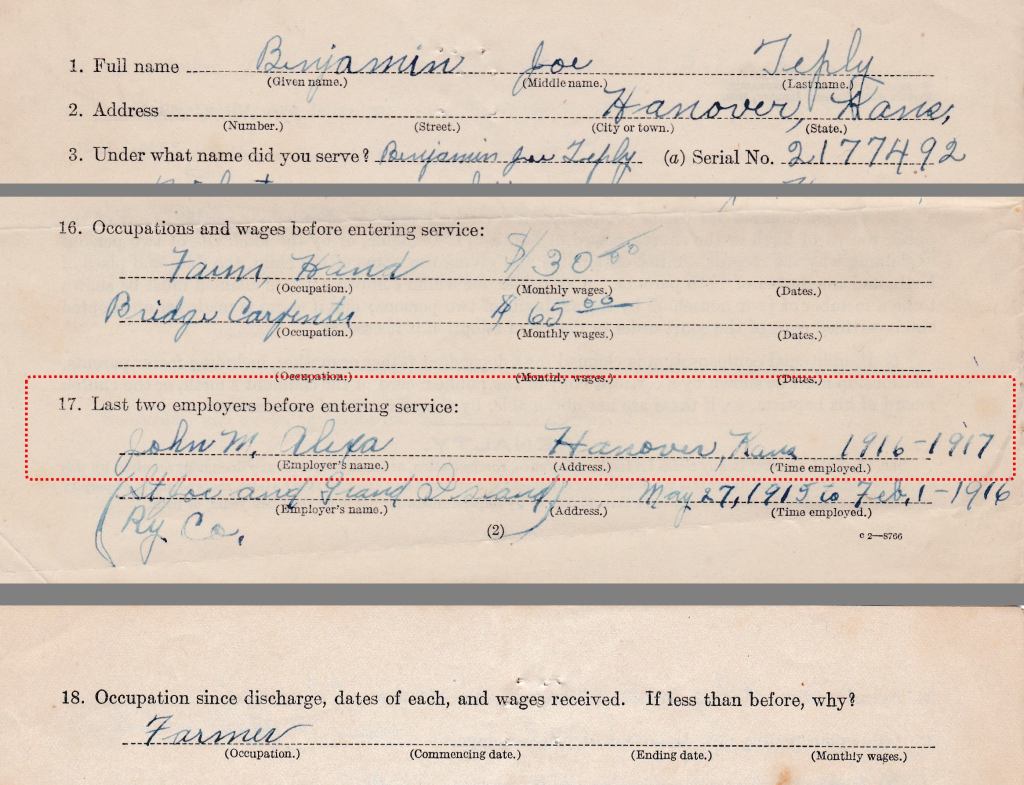 1. Full name Benjamin Joe Teply
(Given name.) (Middle name.) (Last name.)
2. Address Hanover, Kans,
(Number.) (Street.) (City or town.) (State.)
3. Under what name did you serve? Benjamin Joe Teply (a) Serial No. 2177492
16. Occupations and wages before entering service:
Farm, Hand $30 00
(Occupation.) (Monthly wages.) (Dates.)
Bridge Carpenter $65 00
(Occupation.) (Monthly wages.) (Dates.)
(Occupation.) (Monthly wages.) (Dates.)
17. Last two employers before entering service:
John M. Alexa Hanover, Kans 1916-1917
(Employer's name.) (Address.) (Time employed.)
(St Joe and Grand Island) May 27, 1915 to Feb, 1-1916
(Employer's name.) (Address.) (Time employed.)
Ry. Co,
(2) c 2—8766
18. Occupation since discharge, dates of each, and wages received. If less than before, why?
Farmer
(Occupation.) (Commencing date.) (Ending date.) (Monthly wages.)